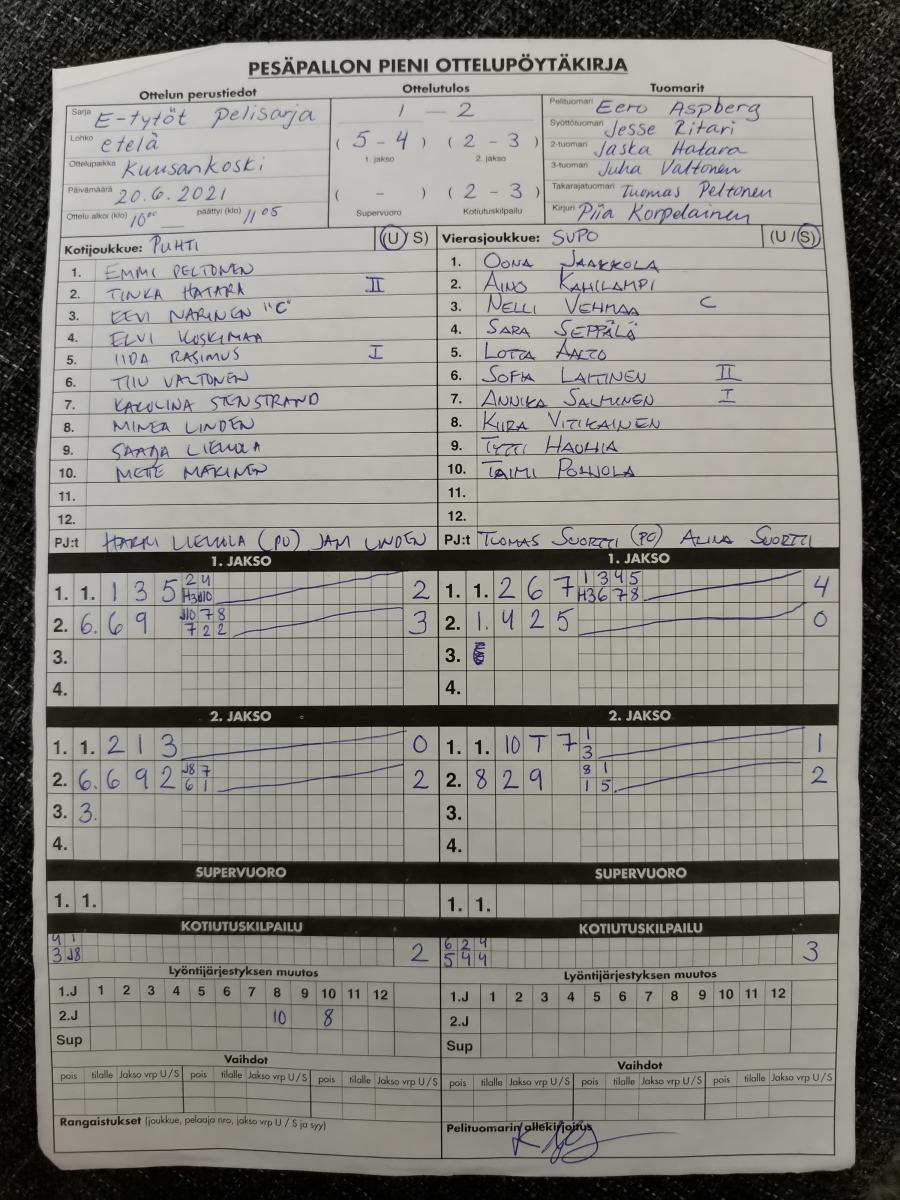 PESÄPALLON PIENI OTTELUPÖYTÄKIRJA
Ottelun perustiedot Ottelutulos Tuomarit
Sarja E-tytöt pelisarja
Lohko etelä
Ottelupaikka Kuusankoski
Päivämäärä 20.6.2021
Ottelu alkoi (klo) 10⁰⁰ päättyi (klo) 11 05
1 — 2
( 5 - 4 ) ( 2 - 3 )
1. jakso 2. jakso
( - ) ( 2 - 3 )
Supervuoro Kotiutuskilpailu
Pelituomari Eero Aspberg
Syöttötuomari Jesse Ritari
2-tuomari Jaska Hatara
3-tuomari Juha Valtonen
Takarajatuomari Tuomas Peltonen
Kirjuri Piia Korpelainen
Kotijoukkue: PUHTI (U/S)
1. EMMI PELTONEN
2. TINKA HATARA II
3. EEVI NARINEN "C"
4. ELVI KOSKIMAA
5. IIDA RASIMUS I
6. TIIU VALTONEN
7. KAROLINA STENSTRAND
8. MINEA LINDEN
9. SAANA LIEMOLA
10. METE MÄKINEN
11.
12.
PJ:t HARRI LIEMOLA (PJ) JANI LINDEN
Vierasjoukkue: SUPO (U/S)
1. OONA JAAKKOLA
2. AINO KAHILAMPI
3. NELLI VEHMAA C
4. SARA SEPPÄLÄ
5. LOTTA AALTO
6. SOFIA LAITINEN II
7. ANNIKA SALMINEN I
8. KIIRA VITIKAINEN
9. TYTTI
10. TAIMI POHJOLA
11.
12.
PJ:t TUOMAS SUORTTI (PJ) ALINA SUORTTI
1. JAKSO 1. JAKSO
1. 1. 1 3 5 2 4 2
H3 J10
2. 6. 6 9 J10 7 8 3
7 2 2
3.
4.
1. 1. 2 6 7 1 3 4 5 4
H3 6 7 8
2. 1. 4 2 5 0
3.
4.
2. JAKSO 2. JAKSO
1. 1. 2 1 3 0
2. 6. 6 9 2 J8 7 2
6 1
3. 3.
4.
1. 1. 10 T 7 1 1
3
2. 8 2 9 8 1 2
1 5
3.
4.
SUPERVUORO SUPERVUORO
1. 1. 1. 1.
KOTIUTUSKILPAILU KOTIUTUSKILPAILU
4 1 2
3 J8
6 2 4 3
5 4 4
Lyöntijärjestyksen muutos Lyöntijärjestyksen muutos
1.J 1 2 3 4 5 6 7 8 9 10 11 12 1.J 1 2 3 4 5 6 7 8 9 10 11 12
2.J 10 8 2.J
Sup Sup
Vaihdot Vaihdot
pois tilalle Jakso vrp U/S pois tilalle Jakso vrp U/S pois tilalle Jakso vrp U/S pois tilalle Jakso vrp U/S pois tilalle Jakso vrp U/S pois tilalle Jakso vrp U/S
Rangaistukset (joukkue, pelaaja nro, jakso vrp U / S ja syy) Pelituomarin allekirjoitus